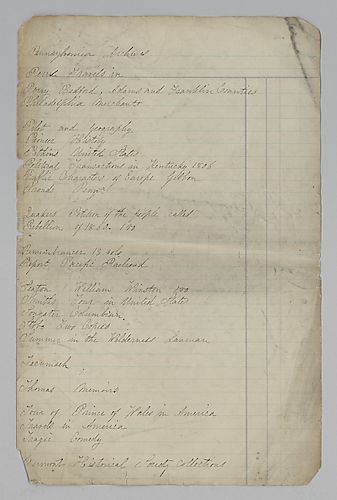 Pennsylvania Archives
Travels in
Perry, Bedford, Adams and Franklin Counties
Philadelphia Merchants
Pilot and geography
Pioneer History
Pitkins United States
Political Transactions in Kentucky 1806
Public Characters of Europe Gibbon
Penn
Quakers Position of the people called
Rebellion of
Remembrancer 13 vols
Report, Pacific Railroad
Seaton William Winston
Smiths Tour in United States
Columbian
Stobo Two Copies
Summer in the Wilderness Lanman
Tecumseh
Thomas Memoirs
Tour of Prince of Wales in America
Travels in America
Tragic Comedy
Vermont Historical Society Collections